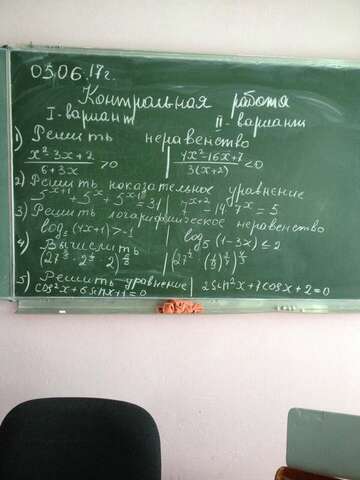 05.06.17г.
Контрольная работа
I-вариант II-вариант
1) Решить неравенство
(x²-3x+2)/(6+3x) >0 (4x²-16x+7)/(3(x+2)) <0
2) Решить показательное уравнение
=31 7ˣ⁺²-14·7ˣ=5
3) Решить логарифмическое неравенство
(4x+1)>-1 log₅(1-3x)≤2
4) Вычислить
5) Решить уравнение
cos²x+6sinx+1=0 2sin²x+7cosx+2=0